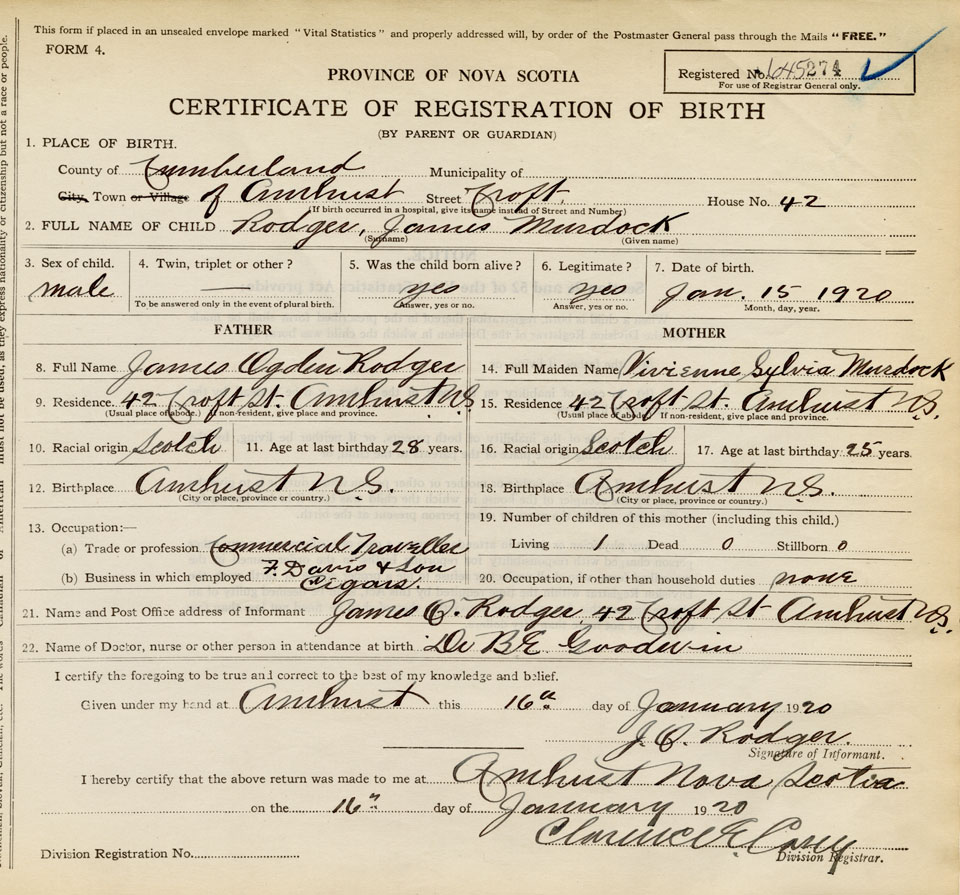 This form if placed in an unsealed envelope marked "Vital Statistics" and properly addressed will, by order of the Postmaster General pass through the Mails "FREE."
FORM 4.
Registered No. 645274
For use of Registrar General only.
PROVINCE OF NOVA SCOTIA
CERTIFICATE OF REGISTRATION OF BIRTH
(BY PARENT OR GUARDIAN)
1. PLACE OF BIRTH.
County of Cumberland Municipality of
City, Town or Village of Amherst Street Croft. House No. 42
(If birth occurred in a hospital, give its name instead of Street and Number)
2. FULL NAME OF CHILD Rodger, James Murdock
(Surname) (Given name)
3. Sex of child. 4. Twin, triplet or other? 5. Was the child born alive? 6. Legitimate? 7. Date of birth.
male — yes yes Jan. 15 1920
To be answered only in the event of plural birth. Answer, yes or no. Answer, yes or no. Month, day, year.
FATHER MOTHER
8. Full Name James Ogden Rodger 14. Full Maiden Name Vivienne Sylvia Murdock
9. Residence 42 Croft St. Amherst N.S. 15. Residence 42 Croft St. Amherst N.S.
(Usual place of abode.) If non-resident, give place and province. (Usual place of abode) If non-resident, give place and province.
10. Racial origin Scotch 11. Age at last birthday 28 years. 16. Racial origin Scotch 17. Age at last birthday 25 years.
12. Birthplace Amherst N.S. 18. Birthplace Amherst N.S.
(City or place, province or country.) (City or place, province or country.)
13. Occupation:— 19. Number of children of this mother (including this child.)
(a) Trade or profession Commercial Traveller Living 1 Dead 0 Stillborn 0
(b) Business in which employed F. Davis & Son Cigars. 20. Occupation, if other than household duties none
21. Name and Post Office address of Informant James O. Rodger, 42 Croft St Amherst N.S.
22. Name of Doctor, nurse or other person in attendance at birth Dr B.E. Goodwin
I certify the foregoing to be true and correct to the best of my knowledge and belief.
Given under my hand at Amherst this 16th day of January 1920
J. O. Rodger.
Signature of Informant.
I hereby certify that the above return was made to me at Amherst Nova Scotia
on the 16th day of January 1920
Clarence E Casey
Division Registration No. Division Registrar.